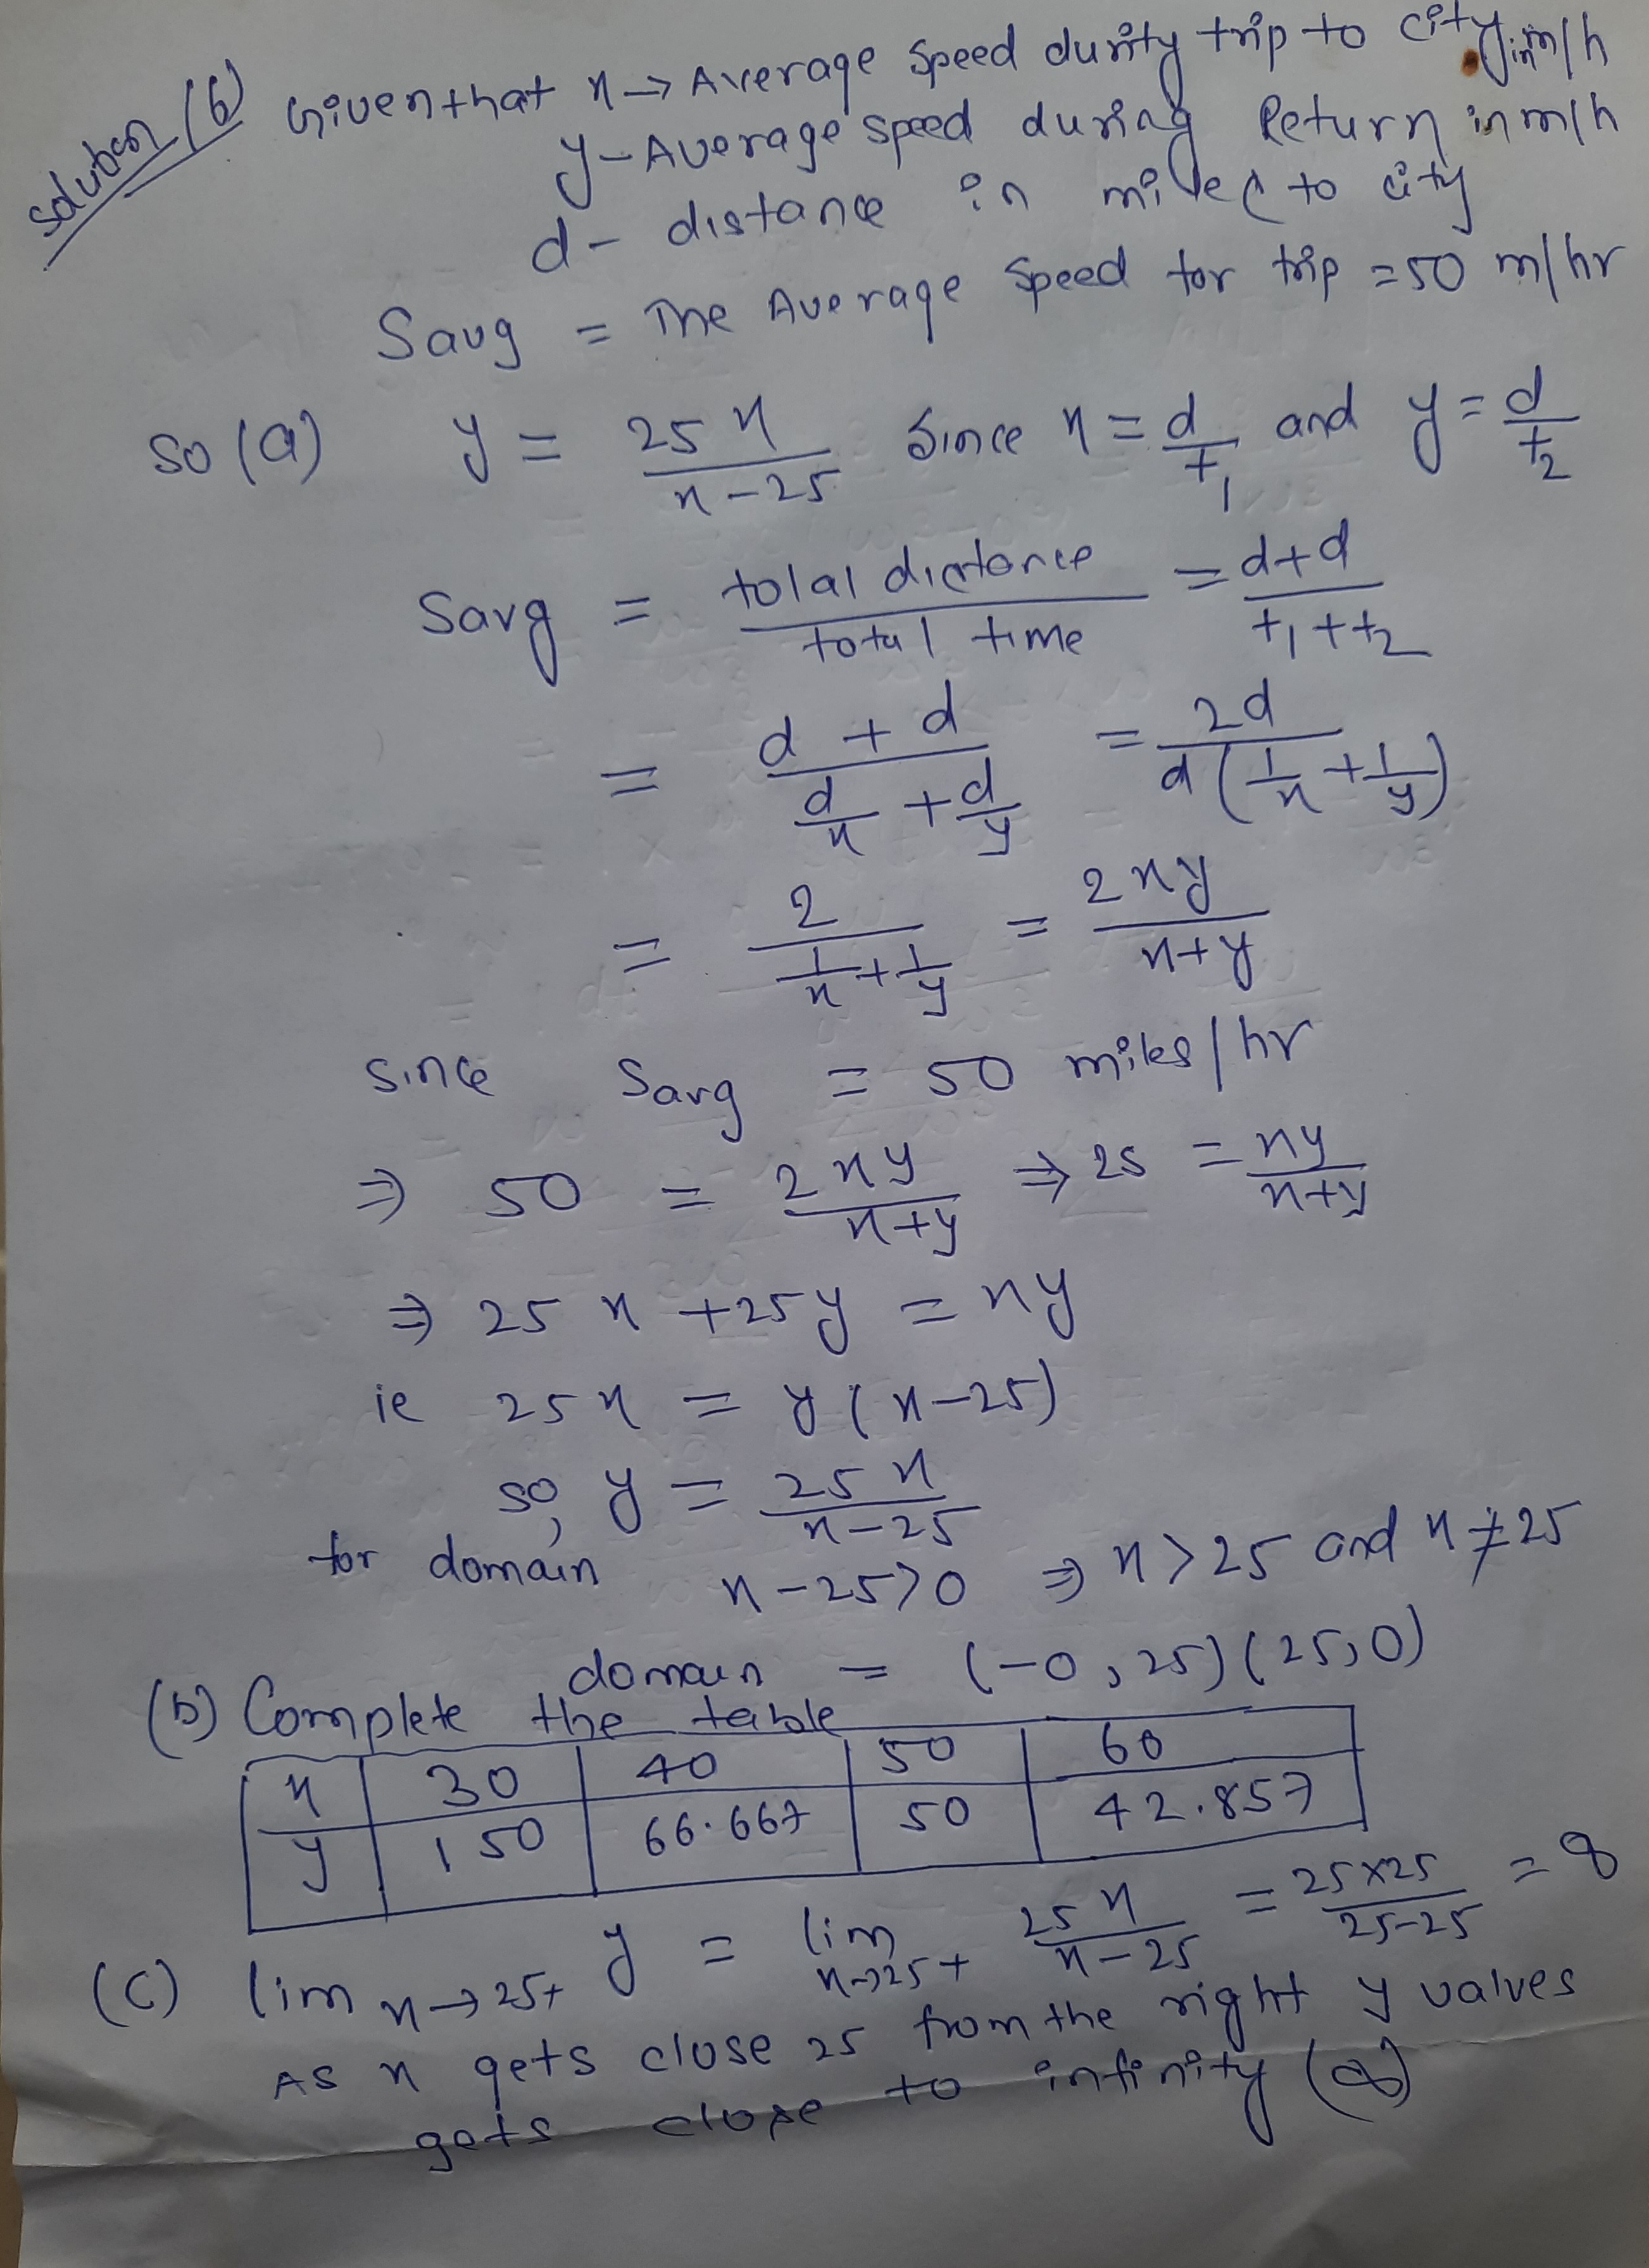 Solution (6) Given that x → Average speed durity trip to city in m/h
y - Average speed during Return in m/h
d - distance in miles to city
Savg = The Average speed for trip = 50 m/hr
so (a) y = 25x/(x-25) Since x = d/t1 and y = d/t2
Savg = total distance/total time = (d+d)/(t1+t2)
= (d+d)/(d/x + d/y) = 2d/(d(1/x + 1/y))
= 2/(1/x + 1/y) = 2xy/(x+y)
since Savg = 50 miles/hr
⇒ 50 = 2xy/(x+y) ⇒ 25 = xy/(x+y)
⇒ 25x + 25y = xy
ie 25x = y(x-25)
so, y = 25x/(x-25)
for domain x-25>0 ⇒ x>25 and x≠25
domain = (-0, 25)(25, 0)
(b) Complete the table
x | 30 | 40 | 50 | 60
y | 150 | 66.667 | 50 | 42.857
(c) lim x→25+ y = lim x→25+ 25x/(x-25) = 25×25/(25-25) = ∞
As x gets close 25 from the right y values
gets close to infinity (∞)